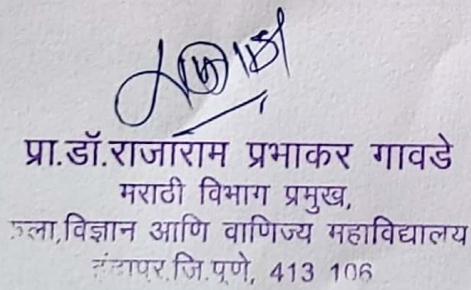 प्रा.डॉ.राजाराम प्रभाकर गावडे
मराठी विभाग प्रमुख,
कला,विज्ञान आणि वाणिज्य महाविद्यालय
इंदापूर.जि.पुणे, 413 106